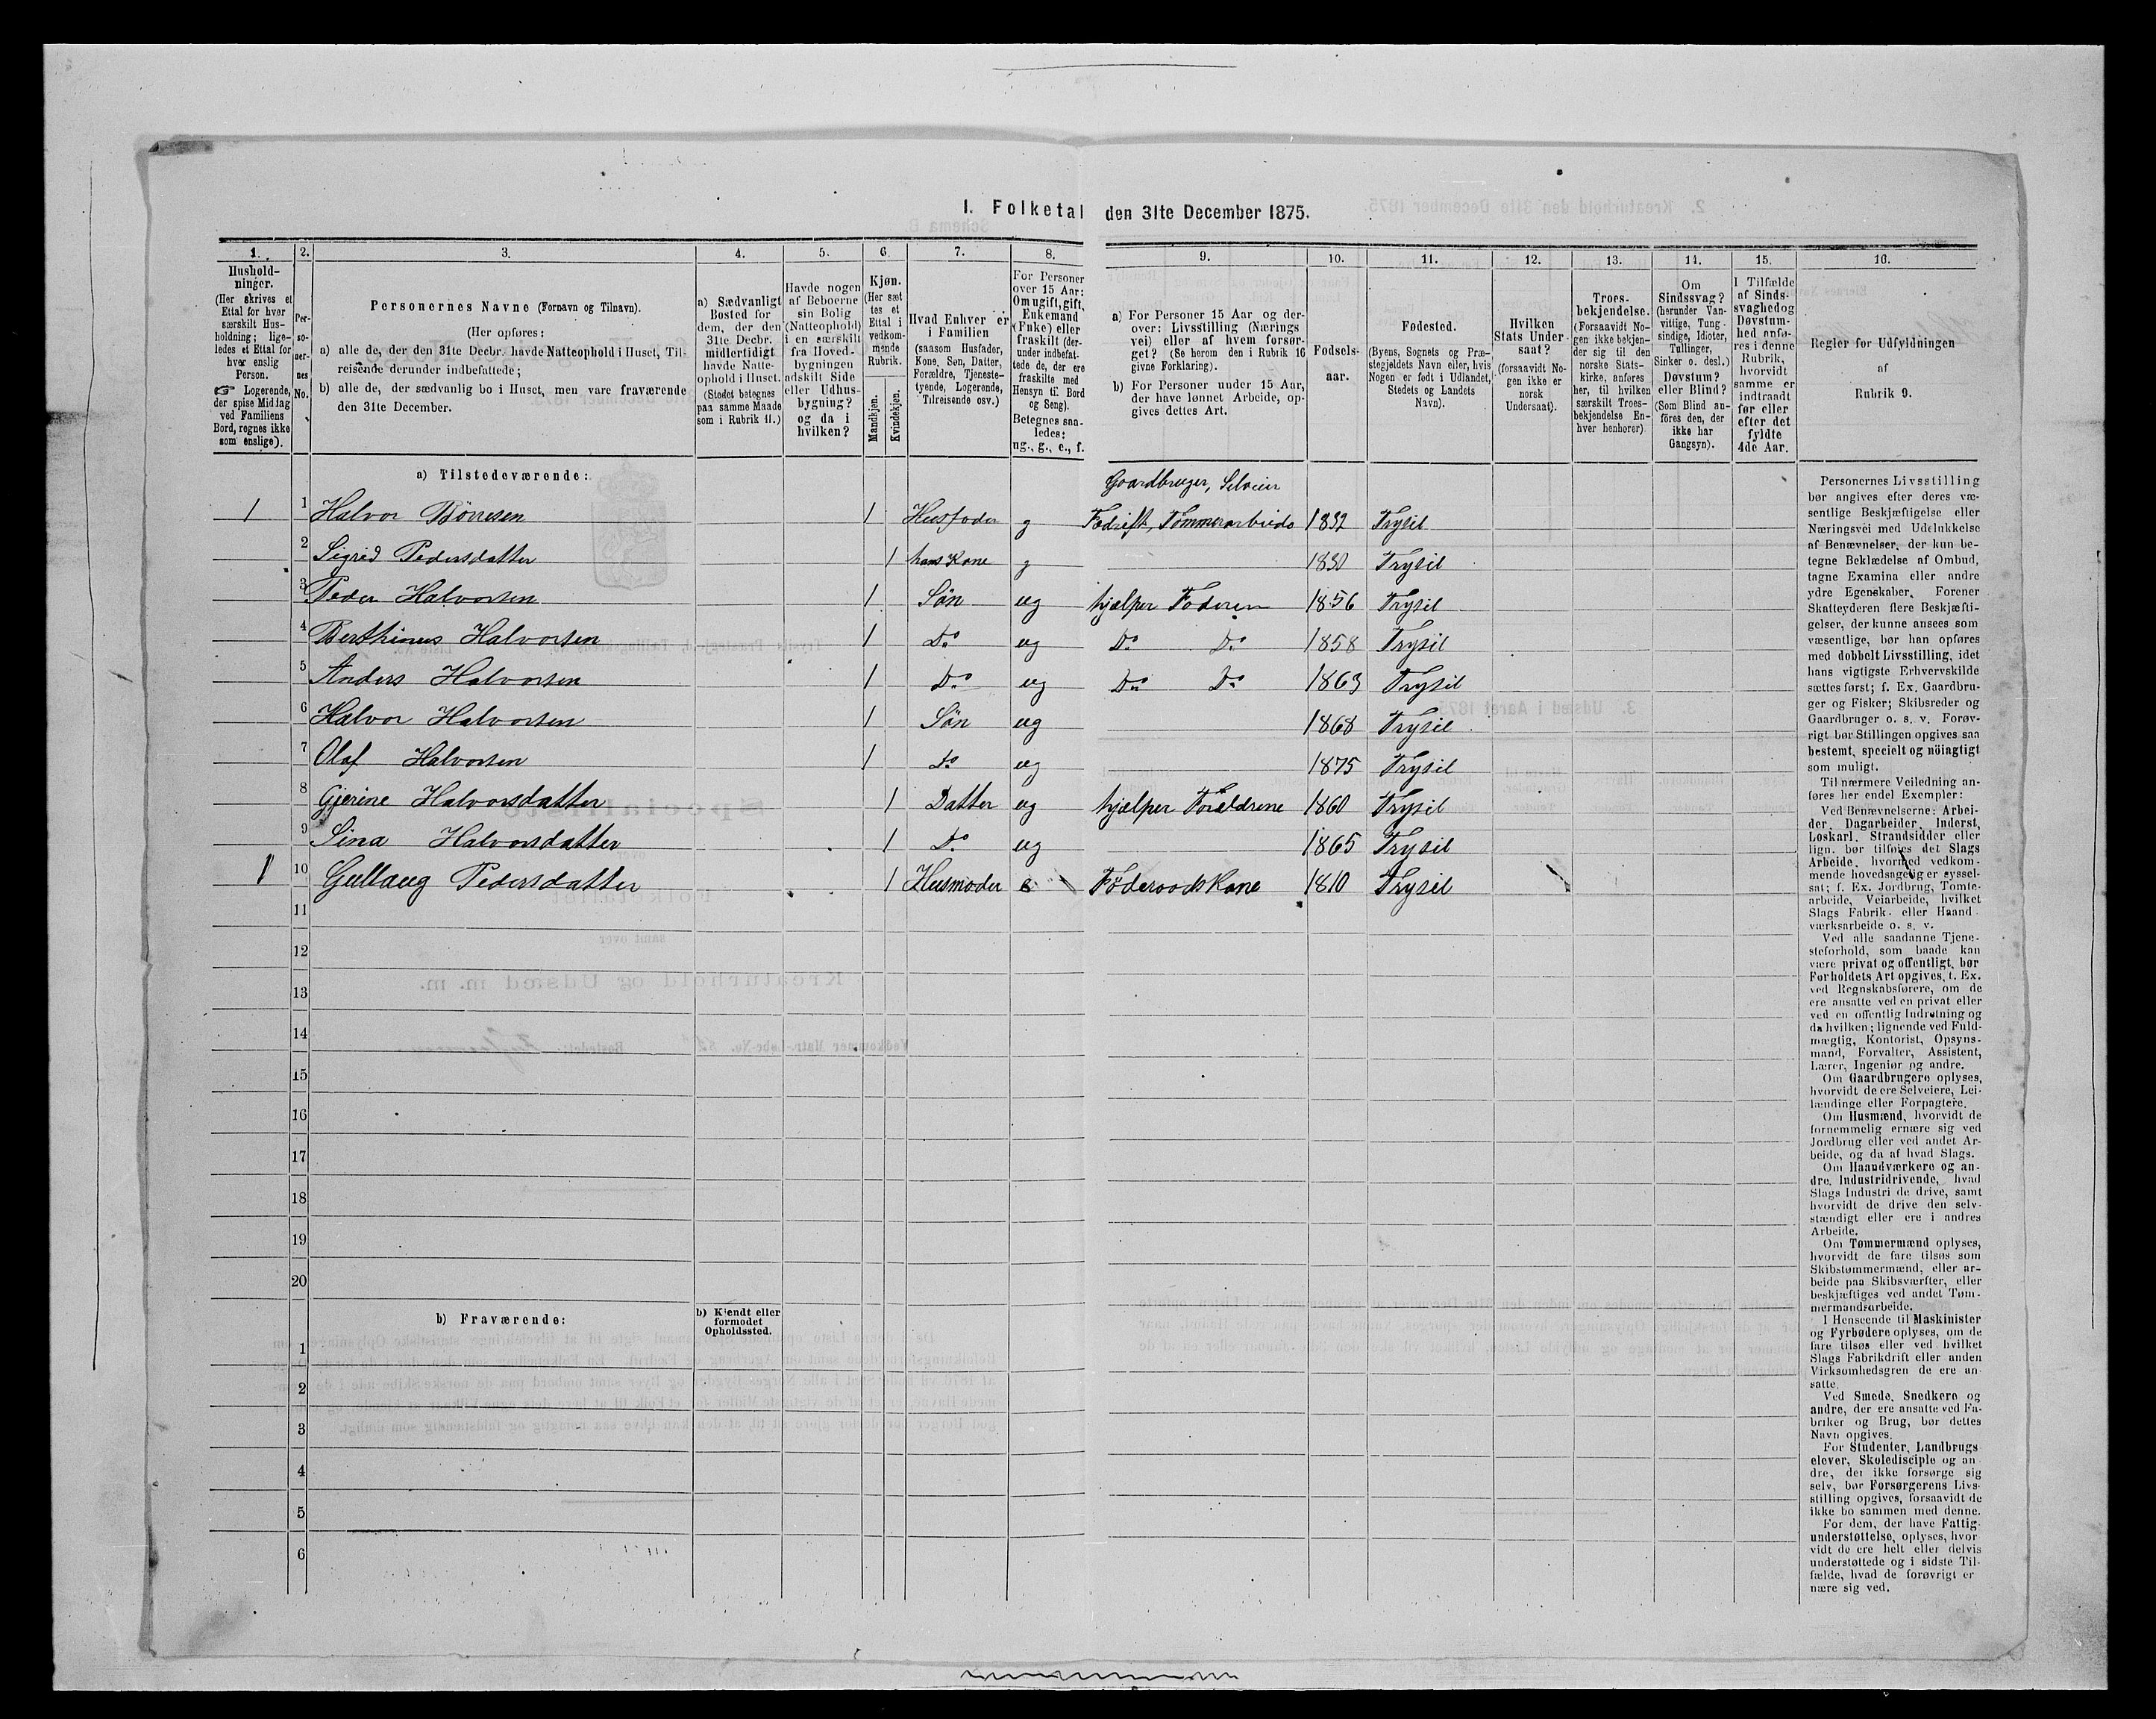 1. Folketal den 31te December 1875.
1. 2. 3. 4. 5. 6. 7. 8. 9. 10. 11. 12. 13. 14. 15. 16.
Hushold-
ninger.
(Her skrives et
Ettal for hver
særskilt Hus-
holdning; lige-
ledes et Ettal for
hver enslig
Person.
☞ Logerende,
der spise Middag
ved Familiens
Bord, regnes ikke
som enslige).
Per-
so-
ner-
nes
No.
Personernes Navne (Fornavn og Tilnavn).
(Her opføres:
a) alle de, der den 31te Decbr. havde Natteophold i Huset, Til-
reisende derunder indbefattede;
b) alle de, der sædvanlig bo i Huset, men vare fraværende
den 31te December.
a) Sædvanligt
Bosted for
dem, der den
31te Decbr.
midlertidigt
havde Natte-
ophold i Huset.
(Stedet betegnes
paa samme Maade
som i Rubrik 11.)
Havde nogen
af Beboerne
sin Bolig
(Natteophold)
i en særskilt
fra Hoved-
bygningen
adskilt Side
eller Udhus-
bygning?
og da i
hvilken?
Kjøn.
(Her sæt
tes et
Ettal i
vedkom-
mende
Rubrik.
Mandkjøn.
Kvindekjøn.
Hvad Enhver er
i Familien
(saasom Husfader,
Kone, Søn, Datter,
Forældre, Tjeneste-
tyende, Logerende,
Tilreisende osv.)
For Personer
over 15 Aar:
Om ugift, gift,
Enkemand
(Enke) eller
fraskilt (der-
under indbefat-
tede de, der ere
fraskilte med
Hensyn til Bord
og Seng).
Betegnes saa-
ledes:
ug., g., e., f.
a) For Personer 15 Aar og der-
over: Livsstilling (Nærings
vei) eller af hvem forsør-
get? (Se herom den i Rubrik 16
givne Forklaring).
b) For Personer under 15 Aar,
der have lønnet Arbeide, op-
gives dettes Art.
Fødsels-
aar.
Fødested.
(Byens, Sognets og Præ-
stegjeldets Navn eller, hvis
Nogen er født i Udlandet,
Stedets og Landets
Navn).
Hvilken
Stats Under-
saat?
(forsaavidt No-
gen ikke er
norsk
Undersaat).
Troes-
bekjendelse.
(Forsaavidt No-
gen ikke bekjen-
der sig til den
norske Stats-
kirke, anføres
her, til hvilken
særskilt Troes-
bekjendelse En-
hver henhører)
Om
Sindssvag?
(herunder Van-
vittige, Tung-
sindige, Idioter,
Tullinger,
Sinker o. desl.)
Døvstum?
eller Blind?
(Som Blind an-
føres den, der
ikke har
Gangsyn).
I Tilfælde
af Sinds-
svaghed og
Døvstum-
hed anfø-
res i denne
Rubrik,
hvorvidt
samme er
indtraadt
før eller
efter det
fyldte
4de Aar.
Regler for Udfyldningen
af
Rubrik 9.
a) Tilstedeværende:
Gaardbruger, Selveier
1 1 Halvor Børresen 1 Husfader g Fædrift, Tømmerarbeide 1832 Trysil
2 Sigrid Pedersdatter 1 hans Kone g 1830 Trysil
3 Peder Halvorsen 1 Søn ug hjælper Faderen 1856 Trysil
4 Berthinus Halvorsen 1 Do ug Do Do 1858 Trysil
5 Anders Halvorsen 1 Do ug Do Do 1863 Trysil
6 Halvor Halvorsen 1 Søn ug 1868 Trysil
7 Olaf Halvorsen 1 Do ug 1875 Trysil
8 Gjerine Halvorsdatter 1 Datter ug hjælper Forældrene 1860 Trysil
9 Sina Halvorsdatter 1 Do ug 1865 Trysil
1 10 Gullaug Pedersdatter 1 Husmoder e Føderaads Kone 1810 Trysil
11
12
13
14
15
16
17
18
19
20
b) Fraværende:
b) Kjendt eller
formodet
Opholdssted.
1
2
3
4
5
6
Personernes Livsstilling
bør angives efter deres væ-
sentlige Beskjæftigelse eller
Næringsvei med Udelukkelse
af Benævnelser, der kun be-
tegne Beklædelse af Ombud,
tagne Examina eller andre
ydre Egenskaber. Forener
Skatteyderen flere Beskjæfti-
gelser, der kunne ansees som
væsentlige, bør han opføres
med dobbelt Livsstilling, idet
hans vigtigste Erhvervskilde
sættes først; f. Ex. Gaardbru-
ger og Fisker; Skibsreder og
Gaardbruger o. s. v. Forøv-
rigt bør Stillingen opgives saa
bestemt, specielt og nöiagtigt
som muligt.
Til nærmere Veiledning an-
føres her endel Exempler:
Ved Benævnelserne: Arbei-
der, Dagarbeider, Inderst,
Løskarl, Strandsidder eller
lign. bør tilføies det Slags
Arbeide, hvormed vedkom-
mende hovedsagelig er syssel-
sat; f. Ex. Jordbrug, Tomte-
arbeide, Veiarbeide, hvilket
Slags Fabrik- eller Haand-
værksarbeide o. s. v.
Ved alle saadanne Tjene-
steforhold, som baade kan
være privat og offentligt, bør
Forholdets Art opgives, f. Ex.
ved Regnskabsførere, om de
ere ansatte ved en privat eller
ved en offentlig Indretning og
da hvilken; lignende ved Fuld-
mægtig, Kontorist, Opsyns-
mand, Forvalter, Assistent,
Lærer, Ingeniør og andre.
Om Gaardbrugere oplyses,
hvorvidt de ere Selveiere, Lei-
lændinge eller Forpagtere.
Om Husmænd, hvorvidt de
fornemmelig ernære sig ved
Jordbrug eller ved andet Ar-
beide, og da af hvad Slags.
Om Haandværkere og an-
dre Industridrivende, hvad
Slags Industri de drive, samt
hvorvidt de drive den selv-
stændigt eller ere i andres
Arbeide.
Om Tømmermænd oplyses,
hvorvidt de fare tilsøs som
Skibstømmermænd, eller ar-
beide paa Skibsværfter, eller
beskjæftiges ved andet Tøm-
mermandsarbeide.
I Henseende til Maskinister
og Fyrbødere oplyses, om de
fare tilsøs eller ved hvilket
Slags Fabrikdrift eller anden
Virksomhedsgren de ere an-
satte.
Ved Smede, Snedkere og
andre, der ere ansatte ved Fa-
briker og Brug, bør dettes
Navn opgives.
For Studenter, Landbrugs
elever, Skoledisciple og an
dre, der ikke forsørge sig
selv, bør Forsørgerens Livs-
stilling opgives, forsaavidt de
ikke bo sammen med denne.
For dem, der have Fattig
understøttelse, oplyses, hvor
vidt de ere helt eller delvis
understøttede og i sidste Til-
fælde, hvad de forøvrigt er
nære sig ved.